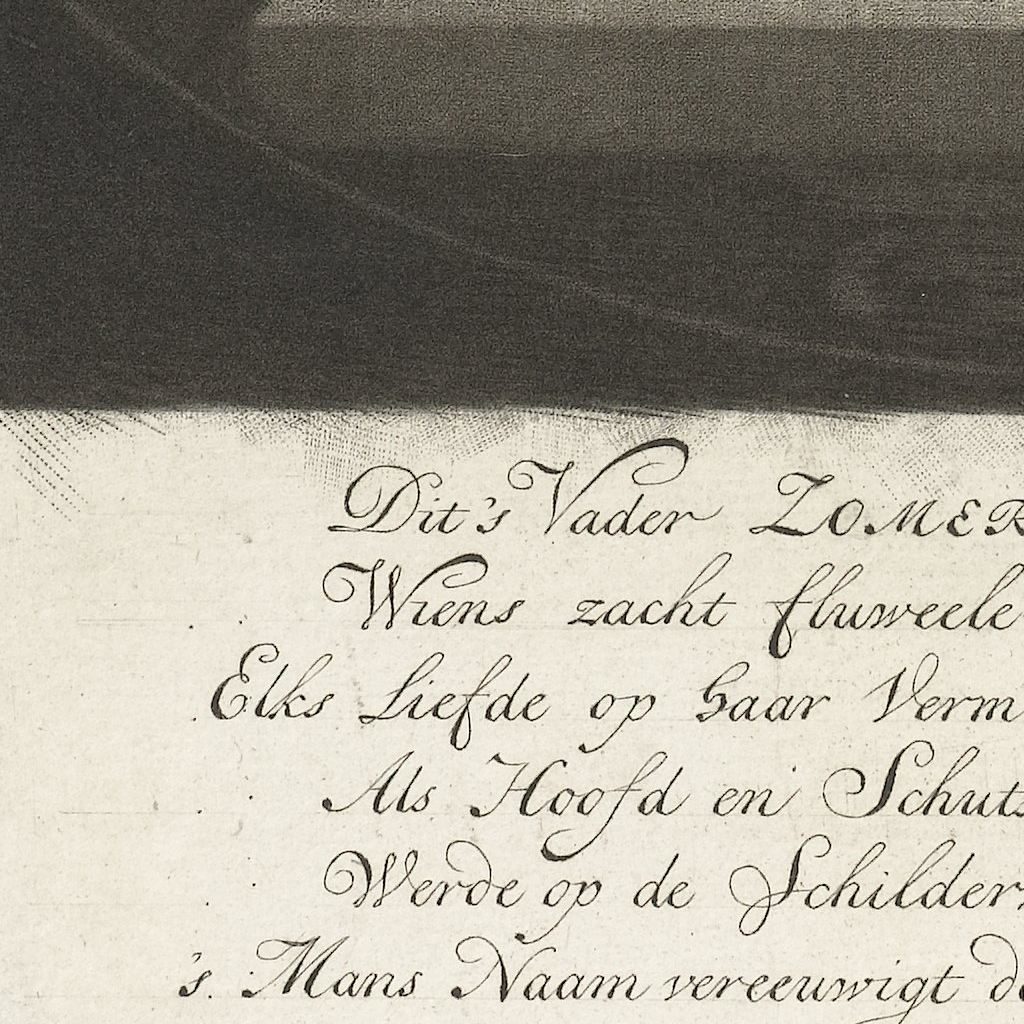 Dit's Vader ZOMER
Wiens zacht fluweele
Elks Liefde op haar Verm
Als Hoofd en Schuts
Werde op de Schilder
's Mans Naam vereeuwigt